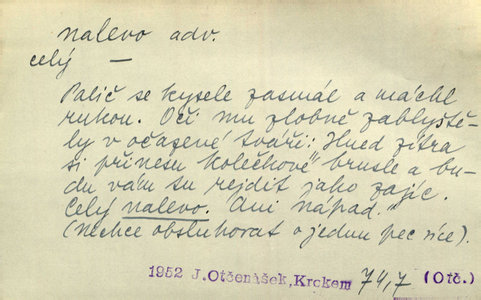 nalevo adv.
celý —
Palič se kysele zasmál a máchl
rukou. Oči mu zlobně zablýště-
ly v očazené tváři: „Hned zítra
si přinesu kolečkové brusle a bu-
du vám tu rejdit jako zajíc.
Celý nalevo. Ani nápad."
(Nechce obsluhovat o jednu pec více).
1952 J.Otčenášek, Krokem 74,7 (Otč.)